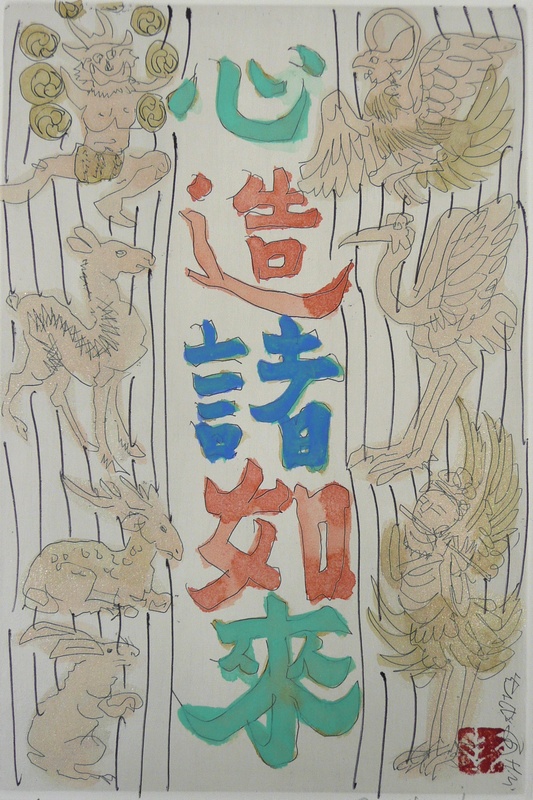 心造諸如來